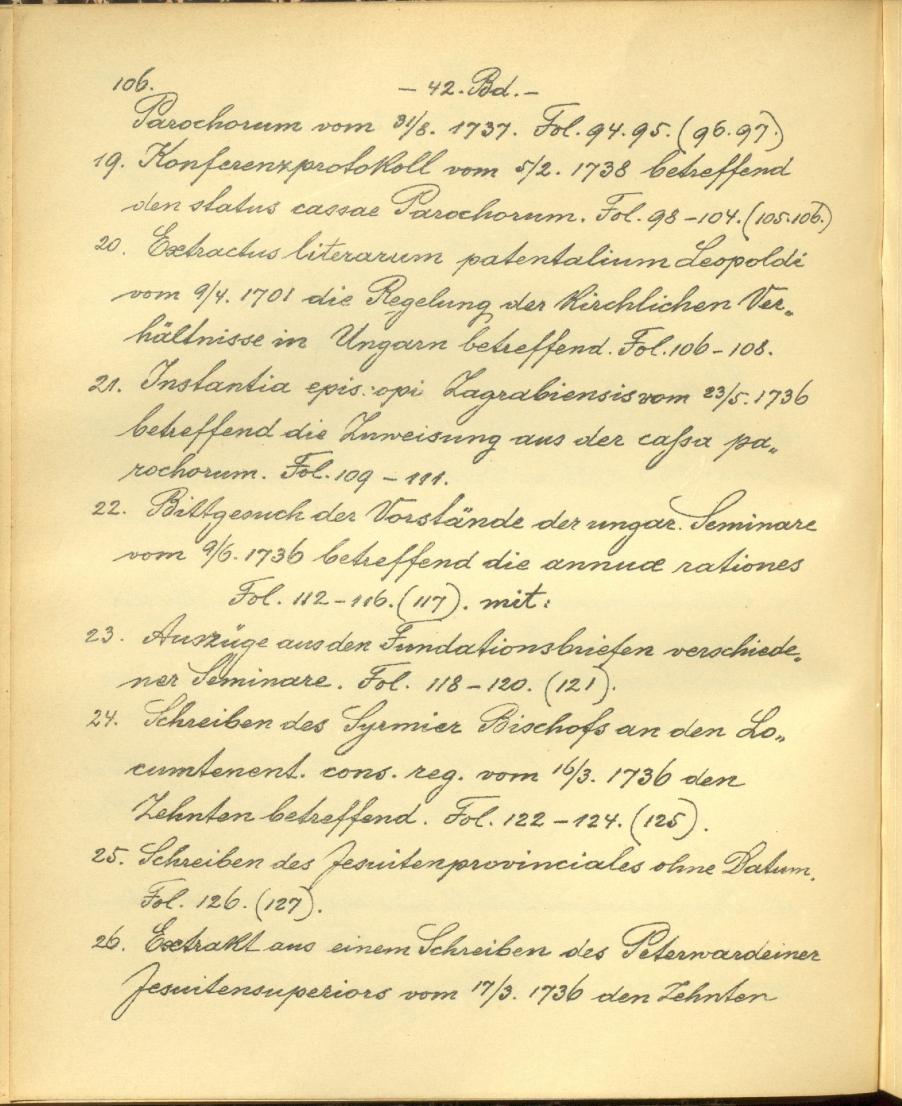 106.
– 42. Bd. –
Parochorum vom 31/8. 1737. Fol. 94. 95. (96. 97.)
19. Konferenzprotokoll vom 5/2. 1738 betreffend
den status cassae Parochorum. Fol. 98 – 104. (105. 106.)
20. Extractus literarum patentalium Leopoldi
vom 9/4. 1701 die Regelung der kirchlichen Ver„
hältnisse in Ungarn betreffend. Fol. 106 – 108.
21. Instantia episcopi Zagrabiensis vom 23/5. 1736
betreffend die Zuweisung aus der caſsa pa„
rochorum. Fol. 109 – 111.
22. Bittgesuch der Vorstände der ungar. Seminare
vom 9/6. 1736 betreffend die annuae rationes
Fol. 112 – 116. (117). mit:
23. Auszüge aus den Fundationsbriefen verschiede„
ner Seminare. Fol. 118 – 120. (121).
24. Schreiben des Syrmier Bischofs an den Lo„
cumtenent. cons. reg. vom 16/3. 1736 den
Zehnten betreffend. Fol. 122 – 124. (125).
25. Schreiben des Jesuitenprovinciales ohne Datum.
Fol. 126. (127).
26. Extrakt aus einem Schreiben des Peterwardeiner
Jesuitensuperiors vom 17/3. 1736 den Zehnten